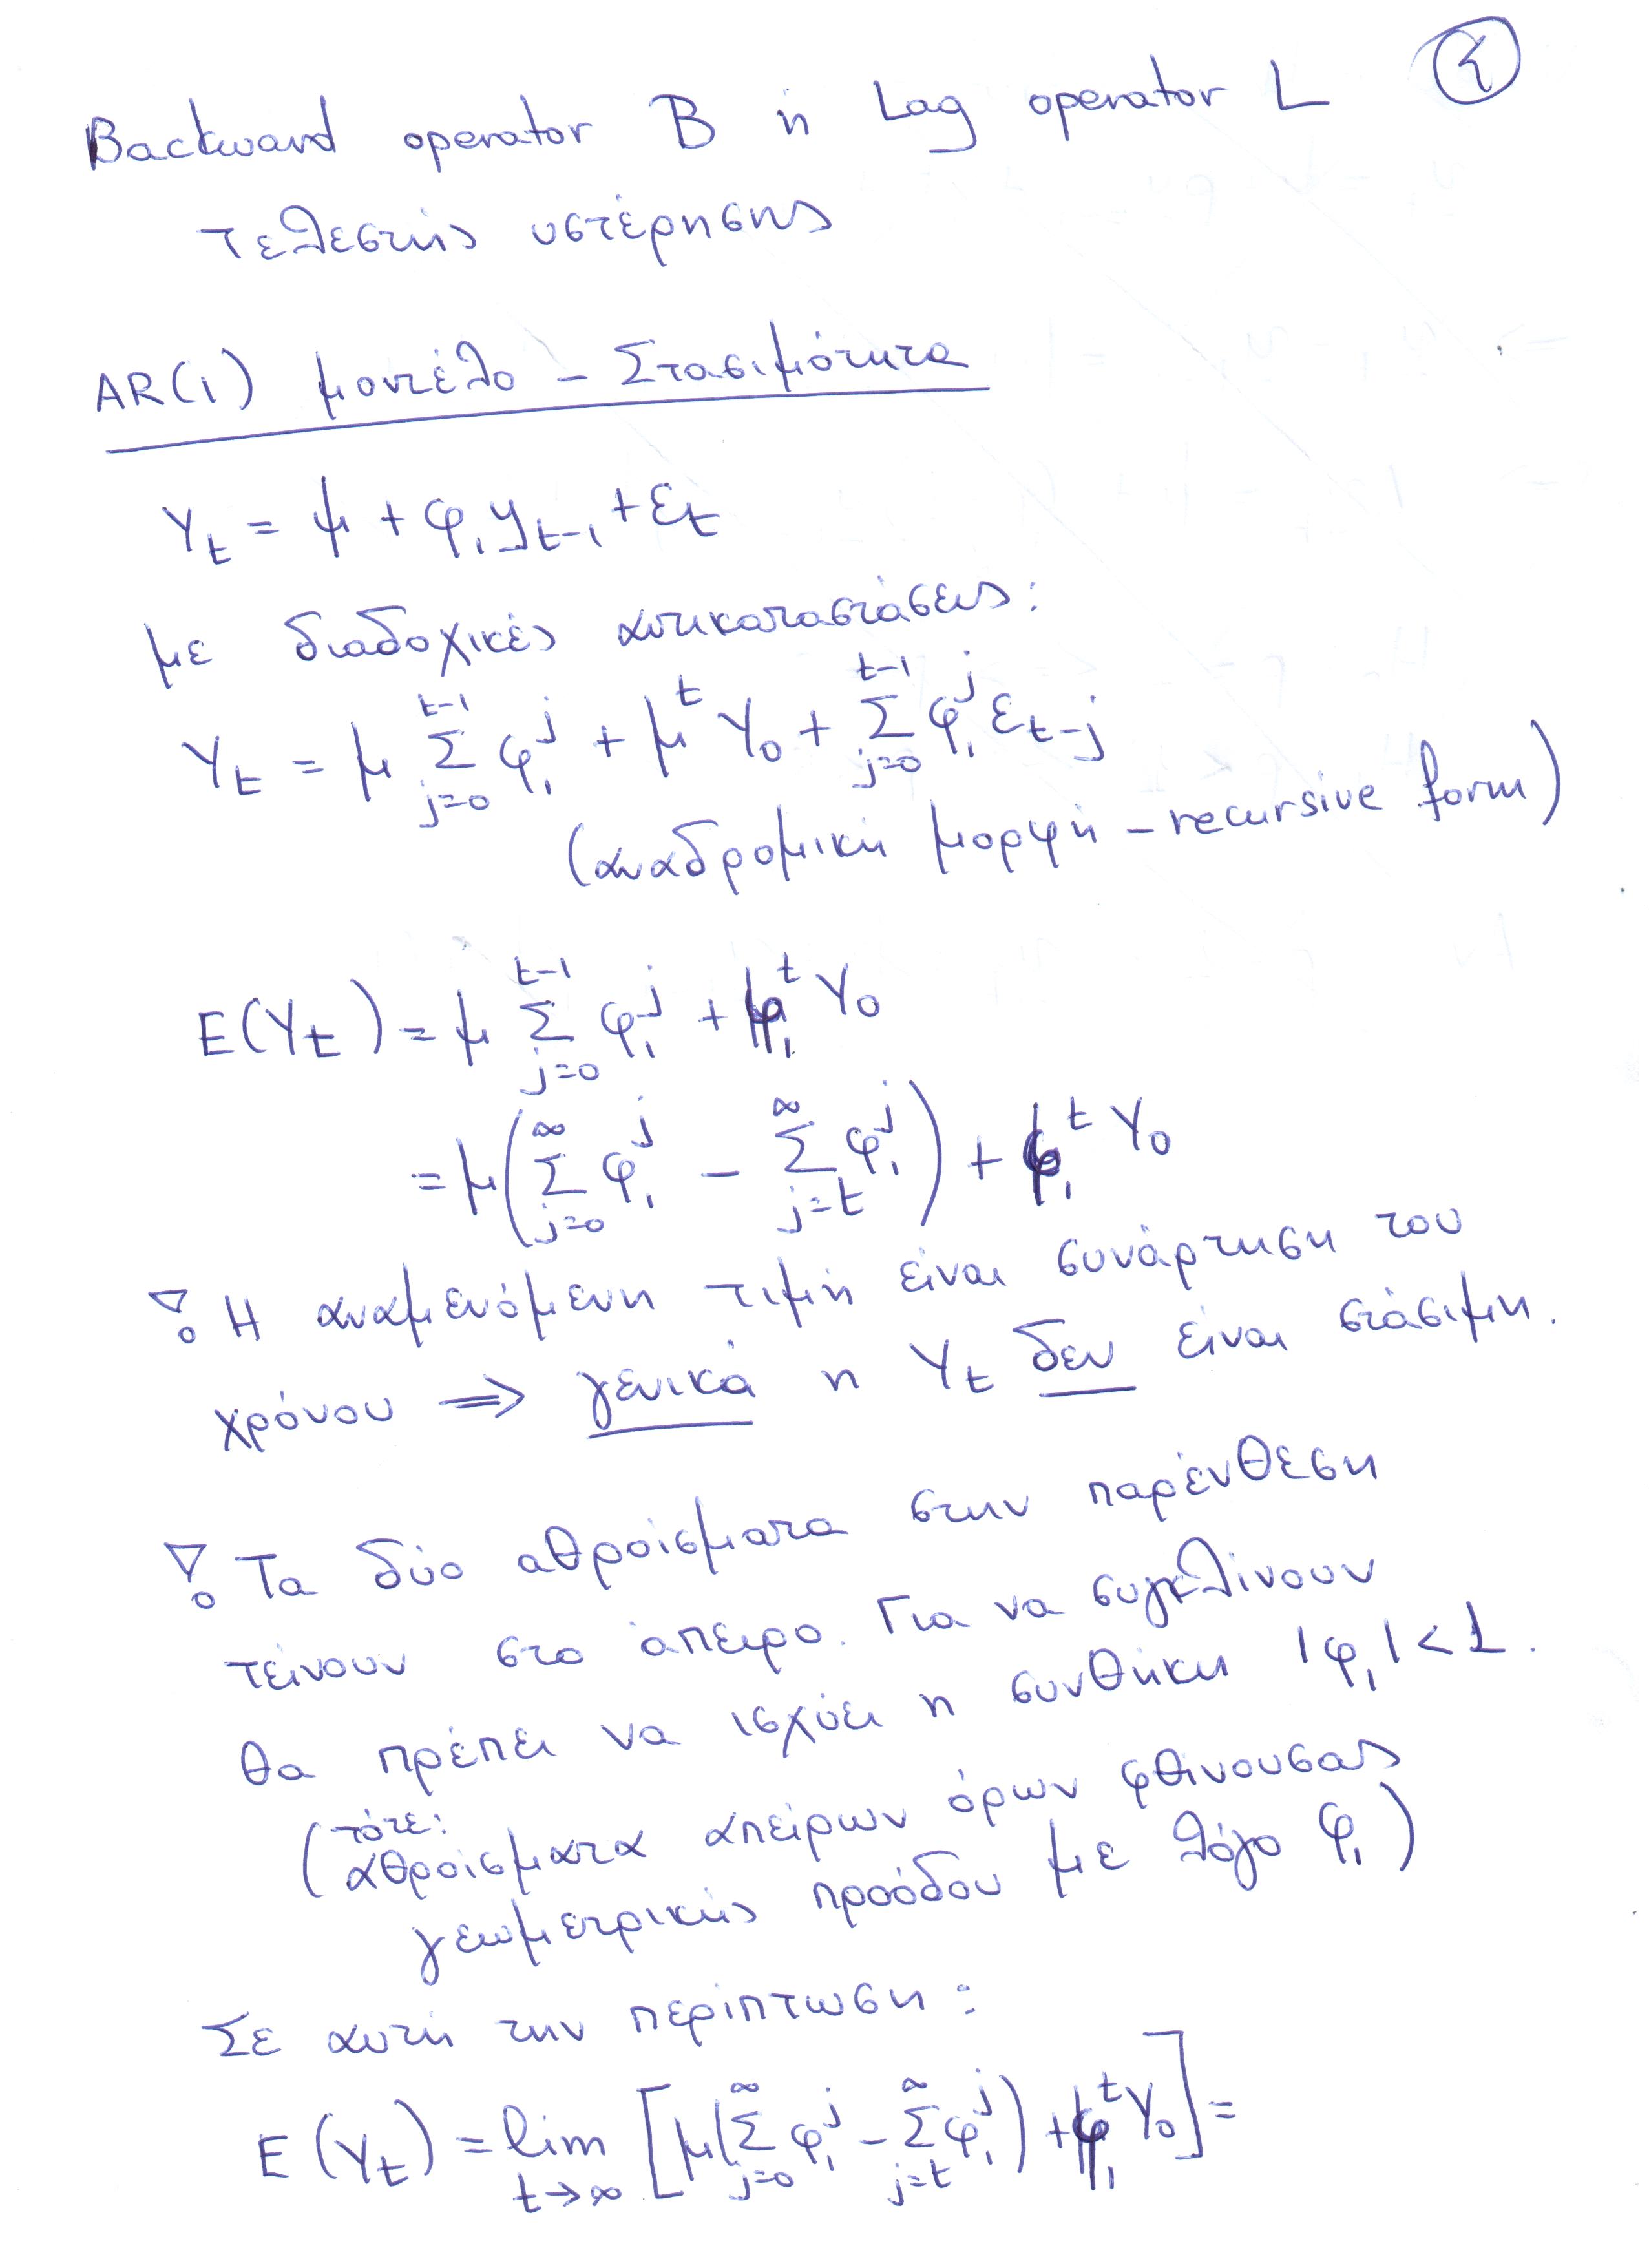 ①
Backward operator B ή Lag operator L
τελεστής υστέρησης
AR(1) μοντέλο – Στασιμότητα
Y_t = μ + φ_1 y_{t-1} + ε_t
με διαδοχικές αντικαταστάσεις:
Y_t = μ Σ_{j=0}^{t-1} φ_1^j + μ^t Y_0 + Σ_{j=0}^{t-1} φ_1^j ε_{t-j}
(αναδρομική μορφή – recursive form)
E(Y_t) = μ Σ_{j=0}^{t-1} φ_1^j + φ_1^t Y_0
= μ(Σ_{j=0}^{∞} φ_1^j – Σ_{j=t}^{∞} φ_1^j) + φ_1^t Y_0
! Η αναμενόμενη τιμή είναι συνάρτηση του
χρόνου ⇒ γενικά η Y_t δεν είναι στάσιμη.
! Τα δύο αθροίσματα στην παρένθεση
τείνουν στο άπειρο. Για να συγκλίνουν
θα πρέπει να ισχύει η συνθήκη |φ_1| < 1.
(τότε: αθροίσματα απείρων όρων φθίνουσας
γεωμετρικής προόδου με λόγο φ_1)
Σε αυτή την περίπτωση:
E(Y_t) = lim_{t→∞} [μ(Σ_{j=0}^{∞} φ_1^j – Σ_{j=t}^{∞} φ_1^j) + φ_1^t Y_0] =